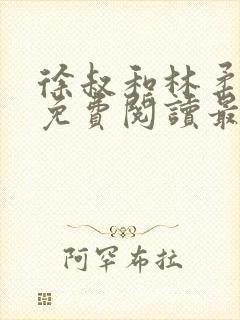 徐叔和林柔
免費閱讀最
阿罕布拉